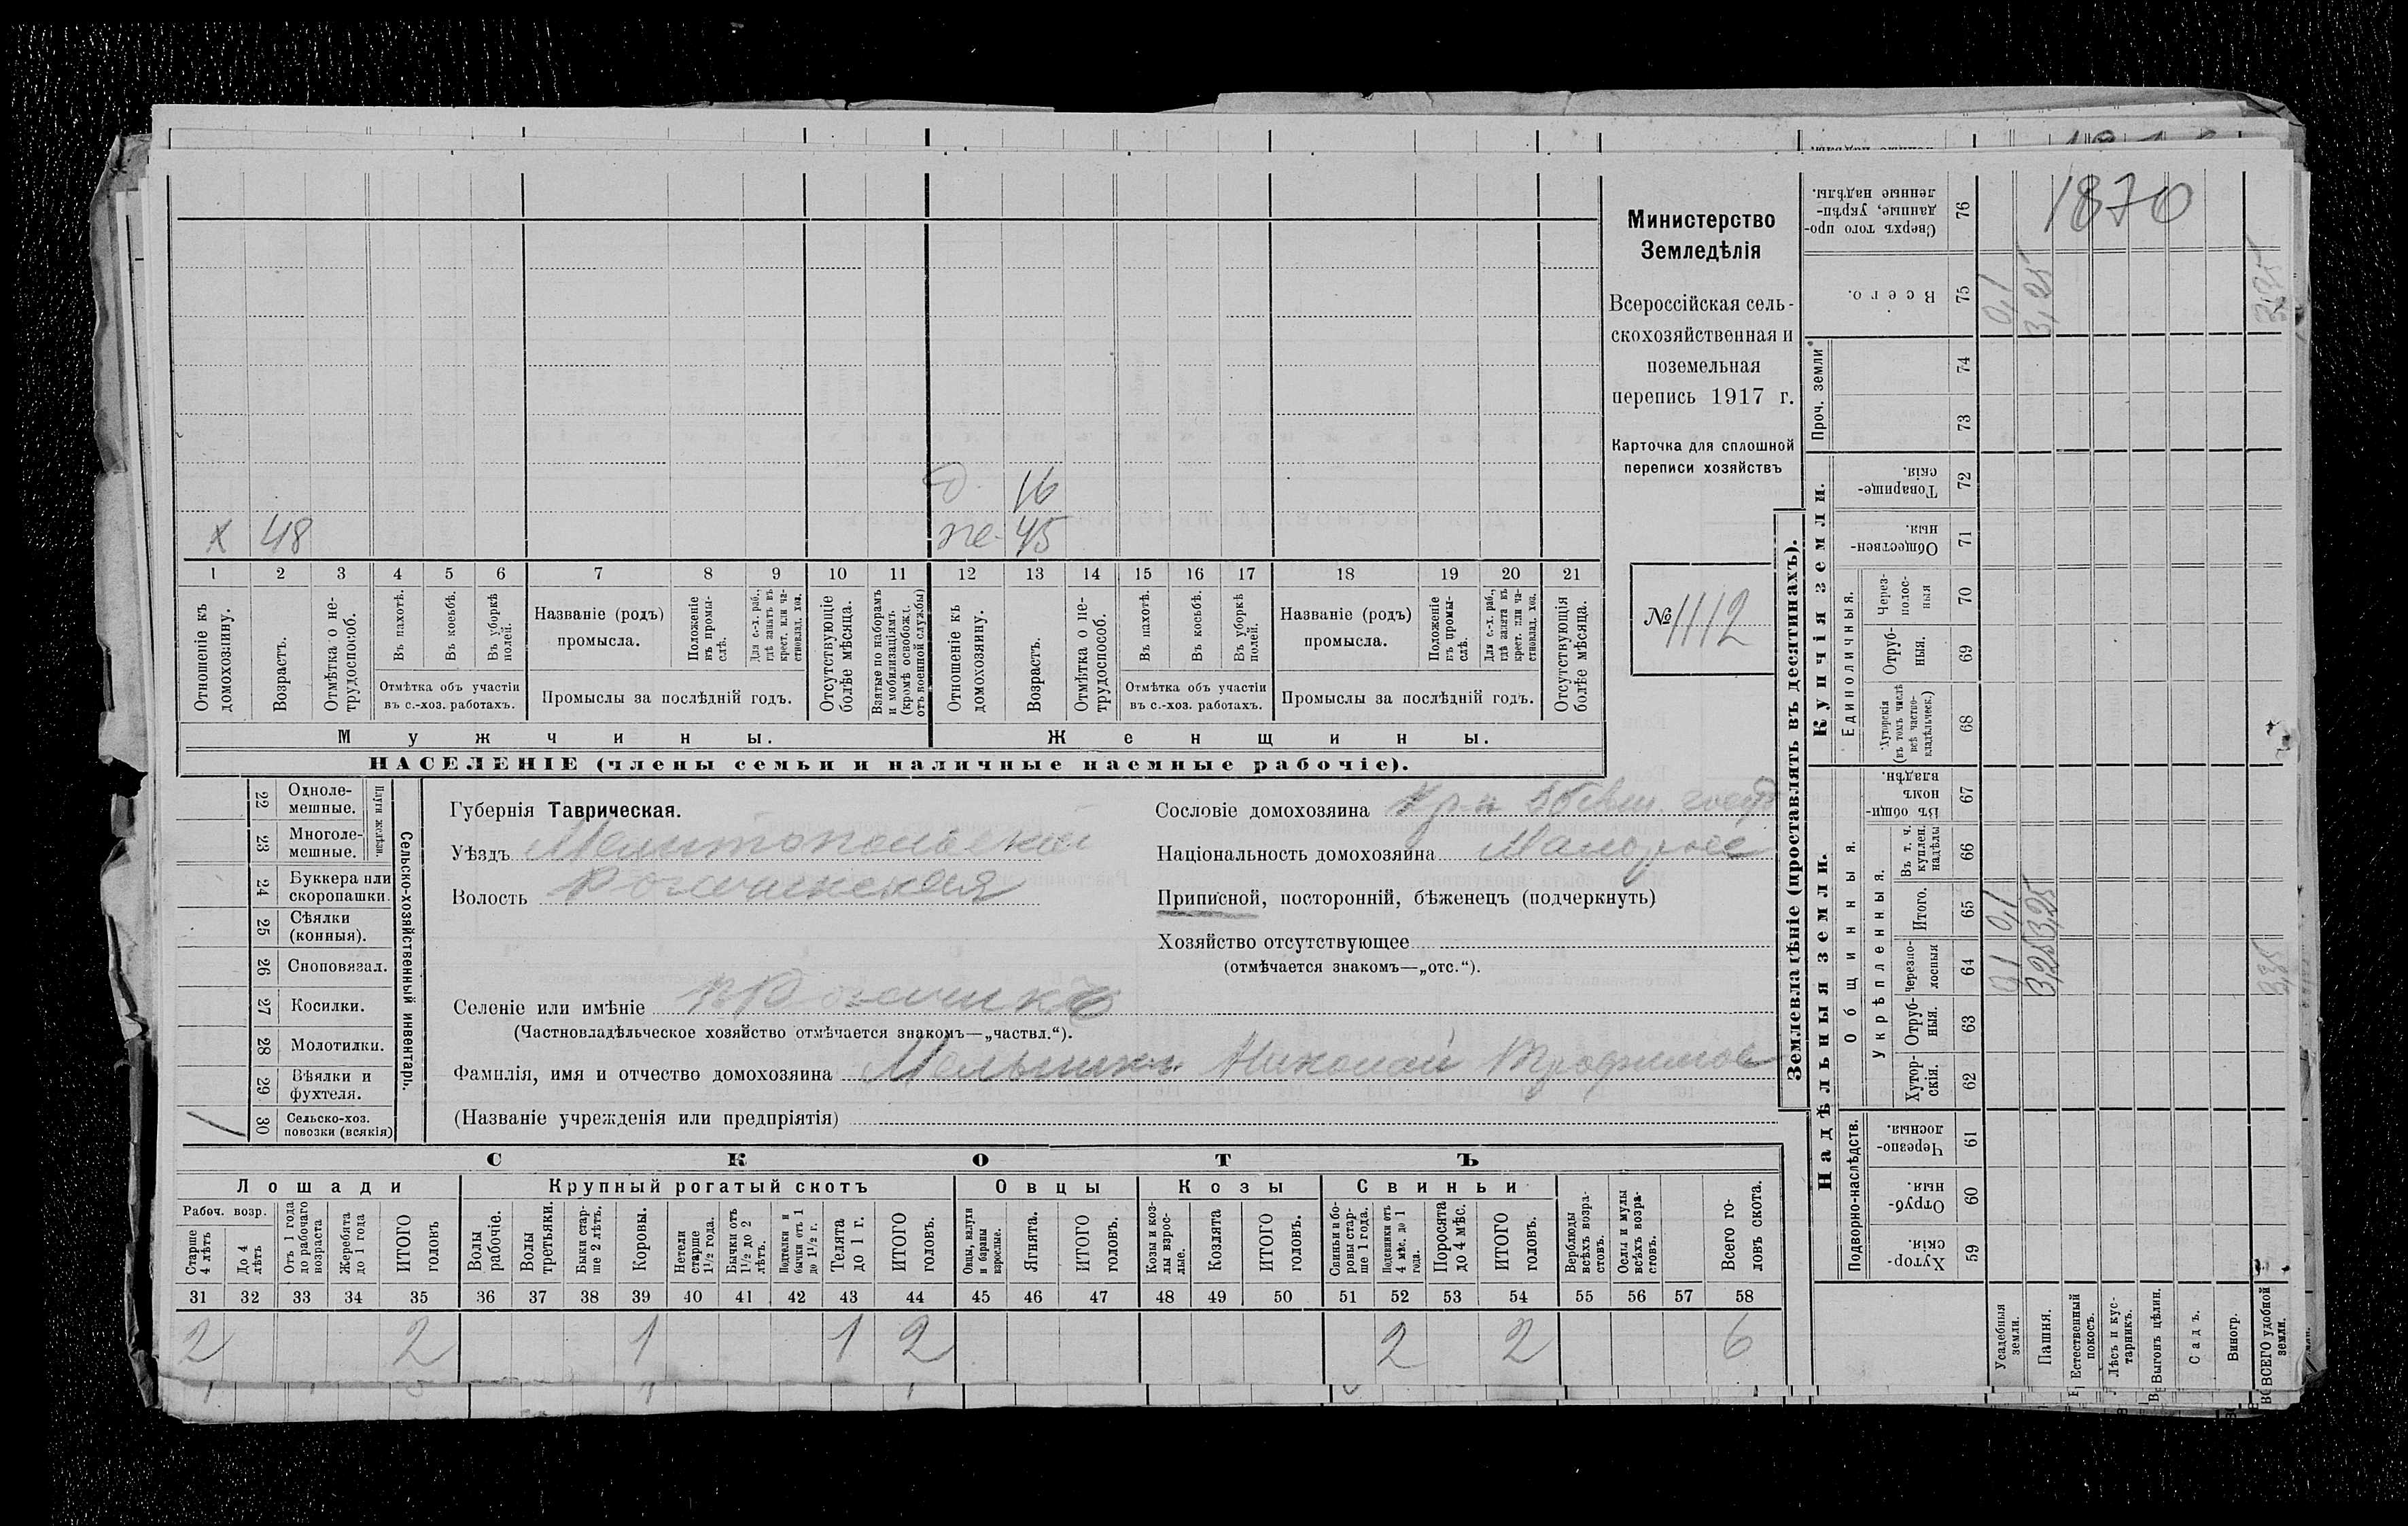 1870
Министерство
Земледѣлія
Всероссійская сель-
скохозяйственная и
поземельная
перепись 1917 г.
Карточка для сплошной
переписи хозяйствъ
№ 1112
д. 16
х 48 же. 45
1 2 3 4 5 6 7 8 9 10 11 12 13 14 15 16 17 18 19 20 21
Отношеніе къ домохозяину.
Возрастъ.
Отмѣтка о не-трудоспособ.
Въ пахотѣ.
Въ косьбѣ.
Въ уборкѣ полей.
Отмѣтка объ участіи
въ с.-хоз. работахъ.
Названіе (родъ)
промысла.
Положеніе въ промы-слѣ.
Для с.-х. раб., гдѣ занятъ въ крест. или ча-стновлад. хоз.
Промыслы за послѣдній годъ.
Отсутствующіе болѣе мѣсяца.
Взятые по наборамъ и мобилизаціямъ (кромѣ освобожд. отъ военной службы)
Отношеніе къ домохозяину.
Возрастъ.
Отмѣтка о не-трудоспособ.
Въ пахотѣ.
Въ косьбѣ.
Въ уборкѣ полей.
Отмѣтка объ участіи
въ с.-хоз. работахъ.
Названіе (родъ)
промысла.
Положеніе въ промы-слѣ.
Для с.-х. раб., гдѣ занята въ крест. или ча-стновлад. хоз.
Промыслы за послѣдній годъ.
Отсутствующія болѣе мѣсяца.
Мужчины. Женщины.
НАСЕЛЕНІЕ (члены семьи и наличные наемные рабочіе).
Сельско-хозяйственный инвентарь.
Плуги желѣзн.
22 Одноле-мешные.
23 Многоле-мешные.
24 Буккера или скоропашки.
25 Сѣялки (конныя).
26 Сноповязал.
27 Косилки.
28 Молотилки.
29 Вѣялки и фухтеля.
30 Сельско-хоз. повозки (всякія) 1
Губернія Таврическая.
Уѣздъ Мелитопольскій
Волость Рогачинская
Сословіе домохозяина Кр-н б бывш. госуд
Національность домохозяина Малоросс
Приписной, посторонній, бѣженецъ (подчеркнуть)
Хозяйство отсутствующее
(отмѣчается знакомъ—„отс.“).
Селеніе или имѣніе В Рогачикъ
(Частновладѣльческое хозяйство отмѣчается знакомъ—„частвл.“).
Фамилія, имя и отчество домохозяина Мельникъ Николай Трофимов
(Названіе учрежденія или предпріятія)
СКОТЪ
Лошади Крупный рогатый скотъ Овцы Козы Свиньи
Рабоч. возр.
Старше 4 лѣтъ
До 4 лѣтъ
Отъ 1 года до рабочаго возраста
Жеребята до 1 года
ИТОГО головъ
Волы рабочіе.
Волы третьяки.
Быки стар-ше 2 лѣтъ.
Коровы.
Нетели старше 1½ года.
Бычки отъ 1½ до 2 лѣтъ.
Подтелки и бычки отъ 1 до 1½ г.
Телята до 1 г.
ИТОГО головъ.
Овцы, валухи и бараны взрослые.
Ягнята.
ИТОГО головъ.
Козы и коз-лы взрос-лые.
Козлята
ИТОГО головъ.
Свиньи и бо-ровы стар-ше 1 года.
Подсвинки отъ 4 мѣс. до 1 года.
Поросята до 4 мѣс.
ИТОГО головъ.
Верблюды всѣхъ возра-стовъ.
Ослы и мулы всѣхъ возра-стовъ.
Всего го-ловъ скота.
31 32 33 34 35 36 37 38 39 40 41 42 43 44 45 46 47 48 49 50 51 52 53 54 55 56 57 58
2 2 1 1 2 2 2 6
Землевладѣніе (проставлять въ десятинахъ).
Надѣльныя земли.
Купчія земли.
Проч. земли
Подворно-наслѣдств.
Общинныя.
Укрѣпленныя.
Единоличныя.
Хутор-скія. 59
Отруб-ныя. 60
Черезпо-лосныя. 61
Хутор-скія. 62
Отруб-ныя. 63
Черезпо-лосныя 64
Итого. 65
Въ т. ч. куплен. надѣлы 66
Въ общин-номъ владѣн. 67
Хуторскія (въ томъ числѣ всѣ частно-владѣльческ.) 68
Отруб-ныя. 69
Через-полос-ныя 70
Обществен-ныя. 71
Товарище-скія. 72
73
74
Всего. 75
Сверхъ того про-данные, укрѣп-ленные надѣлы. 76
Усадебныя земли. 0,1 0,1 0,1
Пашня. 3,25 3,25 3,25
Естественный покосъ.
Лѣсъ и кус-тарникъ.
Выгонъ цѣлин.
Садъ.
Виногр.
ВСЕГО удобной земли. 3,35 3,35